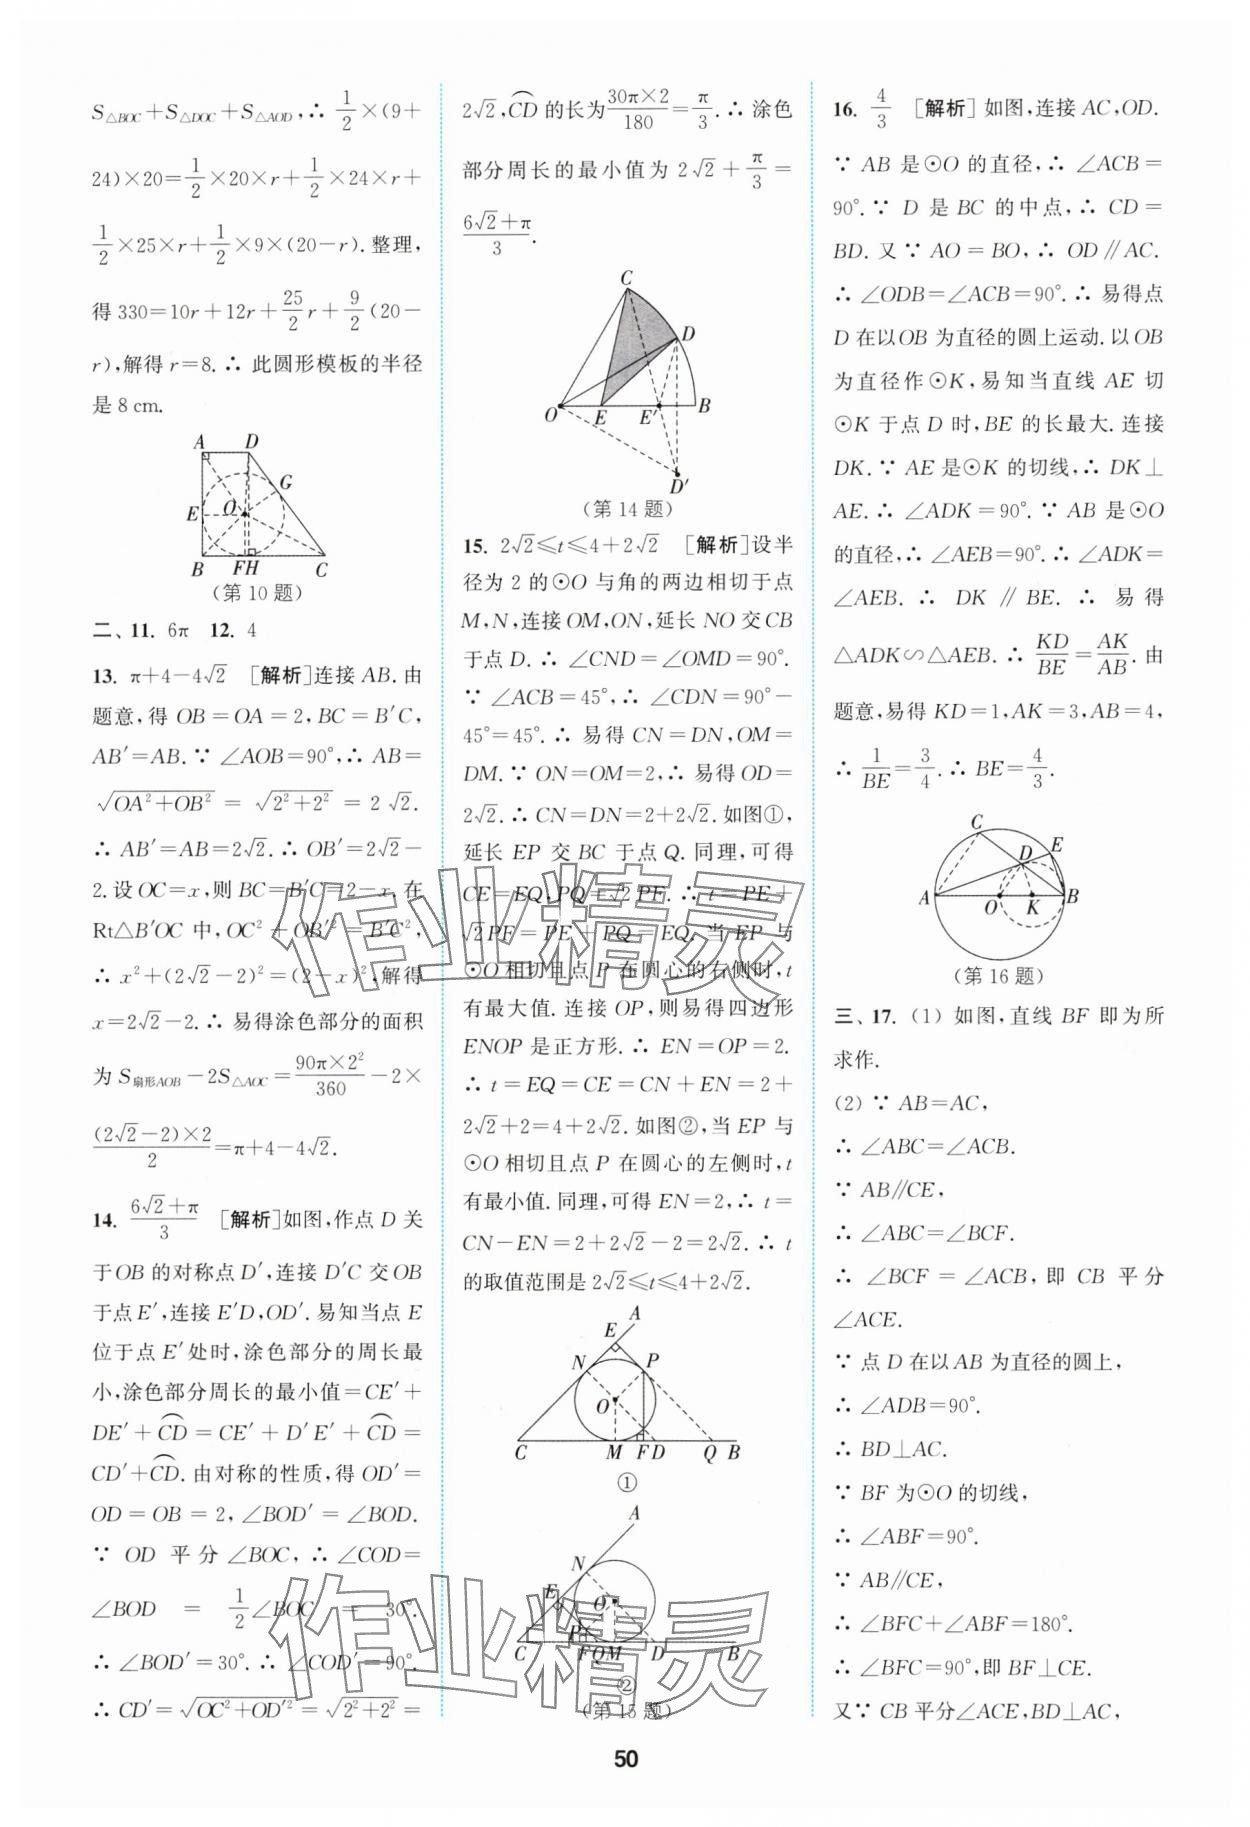 S△BOC+S△DOC+S△AOD,∴ 1/2×(9+
24)×20=1/2×20×r+1/2×24×r+
1/2×25×r+1/2×9×(20-r).整理,
得330=10r+12r+25/2r+9/2(20-
r),解得r=8.∴ 此圆形模板的半径
是8 cm.
A D
G
E O
B FH C
(第10题)
二、11. 6π 12. 4
13. π+4-4√2 [解析]连接AB.由
题意,得OB=OA=2,BC=B′C,
AB′=AB.∵ ∠AOB=90°,∴ AB=
√(OA²+OB²) = √(2²+2²) = 2√2.
∴ AB′=AB=2√2.∴ OB′=2√2-
2.设OC=x,则BC=B′C=2-x.在
Rt△B′OC中,OC²+OB′²=B′C²,
∴ x²+(2√2-2)²=(2-x)²,解得
x=2√2-2.∴ 易得涂色部分的面积
为S扇形AOB-2S△AOC=90π×2²/360-2×
(2√2-2)×2/2=π+4-4√2.
14. (6√2+π)/3 [解析]如图,作点D关
于OB的对称点D′,连接D′C交OB
于点E′,连接E′D,OD′.易知当点E
位于点E′处时,涂色部分的周长最
小,涂色部分周长的最小值=CE′+
DE′+⌒CD=CE′+D′E′+⌒CD=
CD′+⌒CD.由对称的性质,得OD′=
OD=OB=2,∠BOD′=∠BOD.
∵ OD平分∠BOC,∴ ∠COD=
∠BOD = 1/2∠BOC = 30°.
∴ ∠BOD′=30°.∴ ∠COD′=90°.
∴ CD′=√(OC²+OD′²)=√(2²+2²)=
2√2,⌒CD的长为30π×2/180=π/3.∴ 涂色
部分周长的最小值为2√2+π/3=
(6√2+π)/3.
C
D
O E E′ B
D′
(第14题)
15. 2√2≤t≤4+2√2 [解析]设半
径为2的⊙O与角的两边相切于点
M,N,连接OM,ON,延长NO交CB
于点D.∴ ∠CND=∠OMD=90°.
∵ ∠ACB=45°,∴ ∠CDN=90°-
45°=45°.∴ 易得CN=DN,OM=
DM.∵ ON=OM=2,∴ 易得OD=
2√2.∴ CN=DN=2+2√2.如图①,
延长EP交BC于点Q.同理,可得
CE=EQ,PQ=√2PF.∴ t=PE+
√2PF=PE+PQ=EQ.当EP与
⊙O相切且点P在圆心的右侧时,t
有最大值.连接OP,则易得四边形
ENOP是正方形.∴ EN=OP=2.
∴ t=EQ=CE=CN+EN=2+
2√2+2=4+2√2.如图②,当EP与
⊙O相切且点P在圆心的左侧时,t
有最小值.同理,可得EN=2,∴ t=
CN-EN=2+2√2-2=2√2.∴ t
的取值范围是2√2≤t≤4+2√2.
A
E
N P
O
C M F D Q B
①
A
N
E O
P
C F Q M D B
②
(第15题)
16. 4/3 [解析]如图,连接AC,OD.
∵ AB是⊙O的直径,∴ ∠ACB=
90°.∵ D是BC的中点,∴ CD=
BD.又∵ AO=BO,∴ OD∥AC.
∴ ∠ODB=∠ACB=90°.∴ 易得点
D在以OB为直径的圆上运动.以OB
为直径作⊙K,易知当直线AE切
⊙K于点D时,BE的长最大.连接
DK.∵ AE是⊙K的切线,∴ DK⊥
AE.∴ ∠ADK=90°.∵ AB是⊙O
的直径,∴ ∠AEB=90°.∴ ∠ADK=
∠AEB.∴ DK∥BE.∴ 易得
△ADK∽△AEB.∴ KD/BE=AK/AB.由
题意,易得KD=1,AK=3,AB=4,
∴ 1/BE=3/4.∴ BE=4/3.
C
D E
A O K B
(第16题)
三、17.(1) 如图,直线BF即为所
求作.
(2) ∵ AB=AC,
∴ ∠ABC=∠ACB.
∵ AB∥CE,
∴ ∠ABC=∠BCF.
∴ ∠BCF=∠ACB,即CB平分
∠ACE.
∵ 点D在以AB为直径的圆上,
∴ ∠ADB=90°.
∴ BD⊥AC.
∵ BF为⊙O的切线,
∴ ∠ABF=90°.
∵ AB∥CE,
∴ ∠BFC+∠ABF=180°.
∴ ∠BFC=90°,即BF⊥CE.
又∵ CB平分∠ACE,BD⊥AC,
50
作业精灵
作业精灵